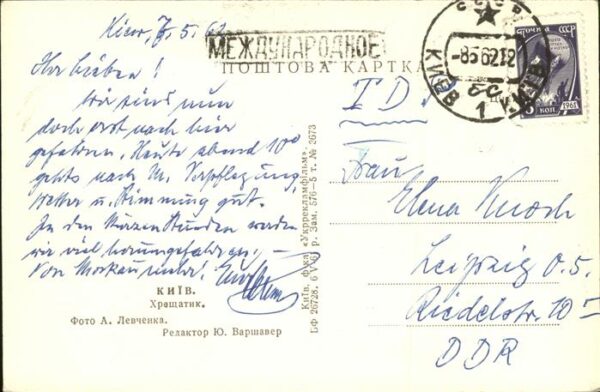 Kiew, 7.5.62
Ihr Lieben!
Wir sind nun
doch erst nach hier
gefahren. Heute abend 10⁰⁰
gehts nach M. Verpflegung,
Wetter u. Stimmung gut.
In den kurzen Stunden werden
wir viel herumgefahren. –
Von Moskau mehr!
КИЇВ.
Хрещатик.
Фото А. Левченка.
Редактор Ю. Варшавер
Київ. ф-ка «Укррекламфільм».
БФ 26728. 6 V 61 р. Зам. 576—5 т. № 2673
МЕЖДУНАРОДНОЕ
ПОШТОВА КАРТКА
СССР
КИЕВ
-8562 12
1
ПОЧТА СССР
6 КОП
1961
Frau
Elena Knoch
Leipzig O.5.
Riedelstr. 10
DDR